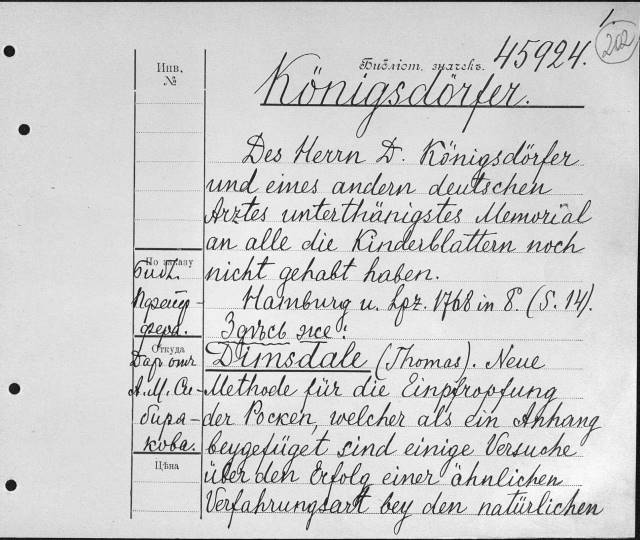 1.
202
Инв.
№
Библіот. значекъ. 45924.
Königsdörfer.
Des Herrn D. Königsdörfer
und eines andern deutschen
Arztes unterthänigstes Memorial
an alle die Kinderblattern noch
nicht gehabt haben.
Hamburg u. Lpz. 1768 in 8. (S. 14).
Здѣсь же:
Dimsdale (Thomas). Neue
Methode für die Einpfropfung
der Pocken, welcher als ein Anhang
beygefüget sind einige Versuche
über den Erfolg einer ähnlichen
Verfahrungsart bey den natürlichen
По заказу
Библ.
Пфейф-
фера.
Откуда
Дар. отъ
А. М. Си-
биря-
кова.
Цѣна